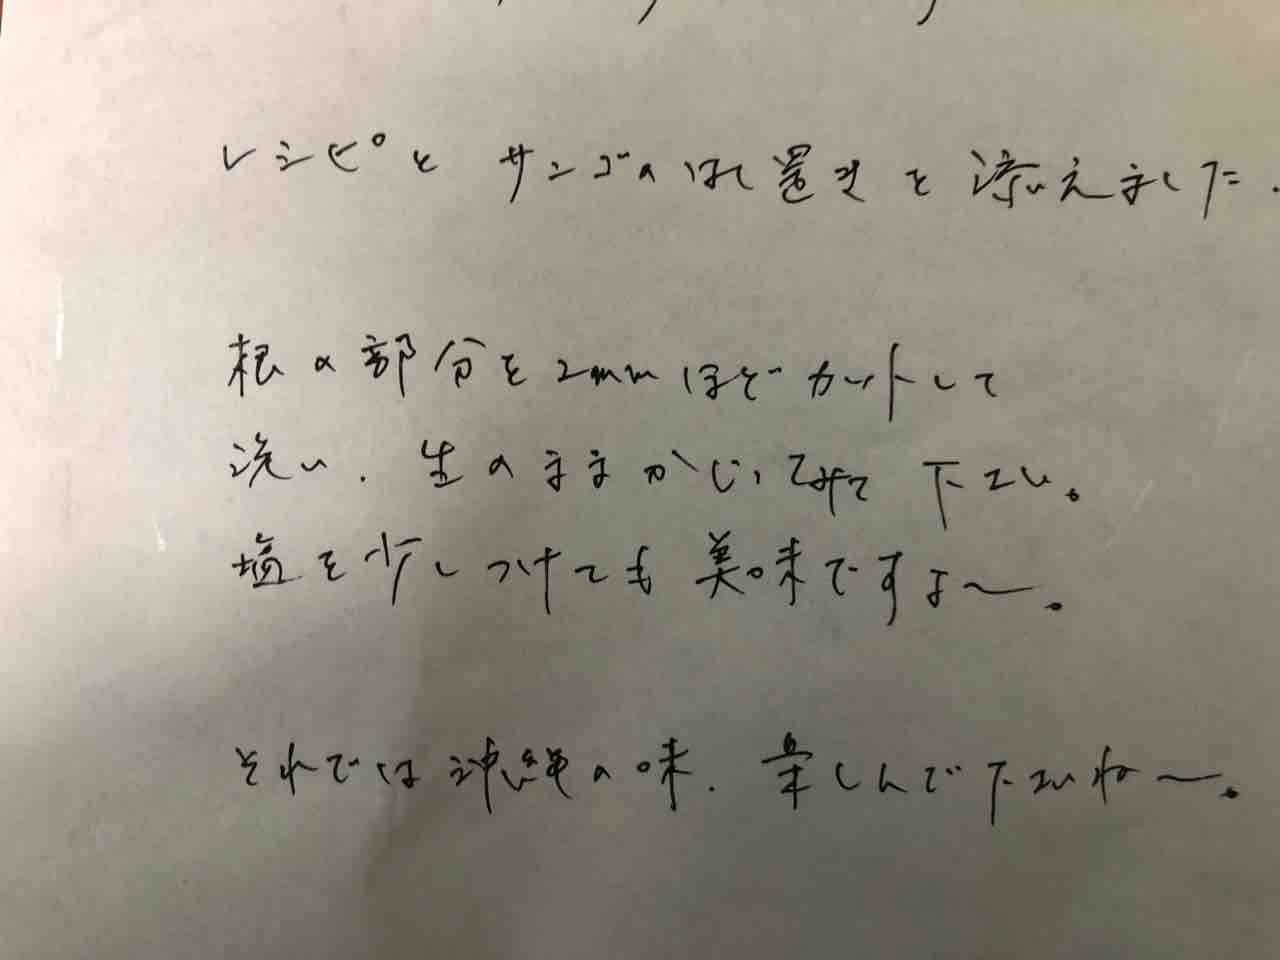 レシピと サンゴのはし置きを添えました.
根の部分を2mmほどカットして
洗い. 生のままかじってみて下さい。
塩を少しつけても美味ですよ〜。
それでは沖縄の味. 楽しんで下さいね〜。